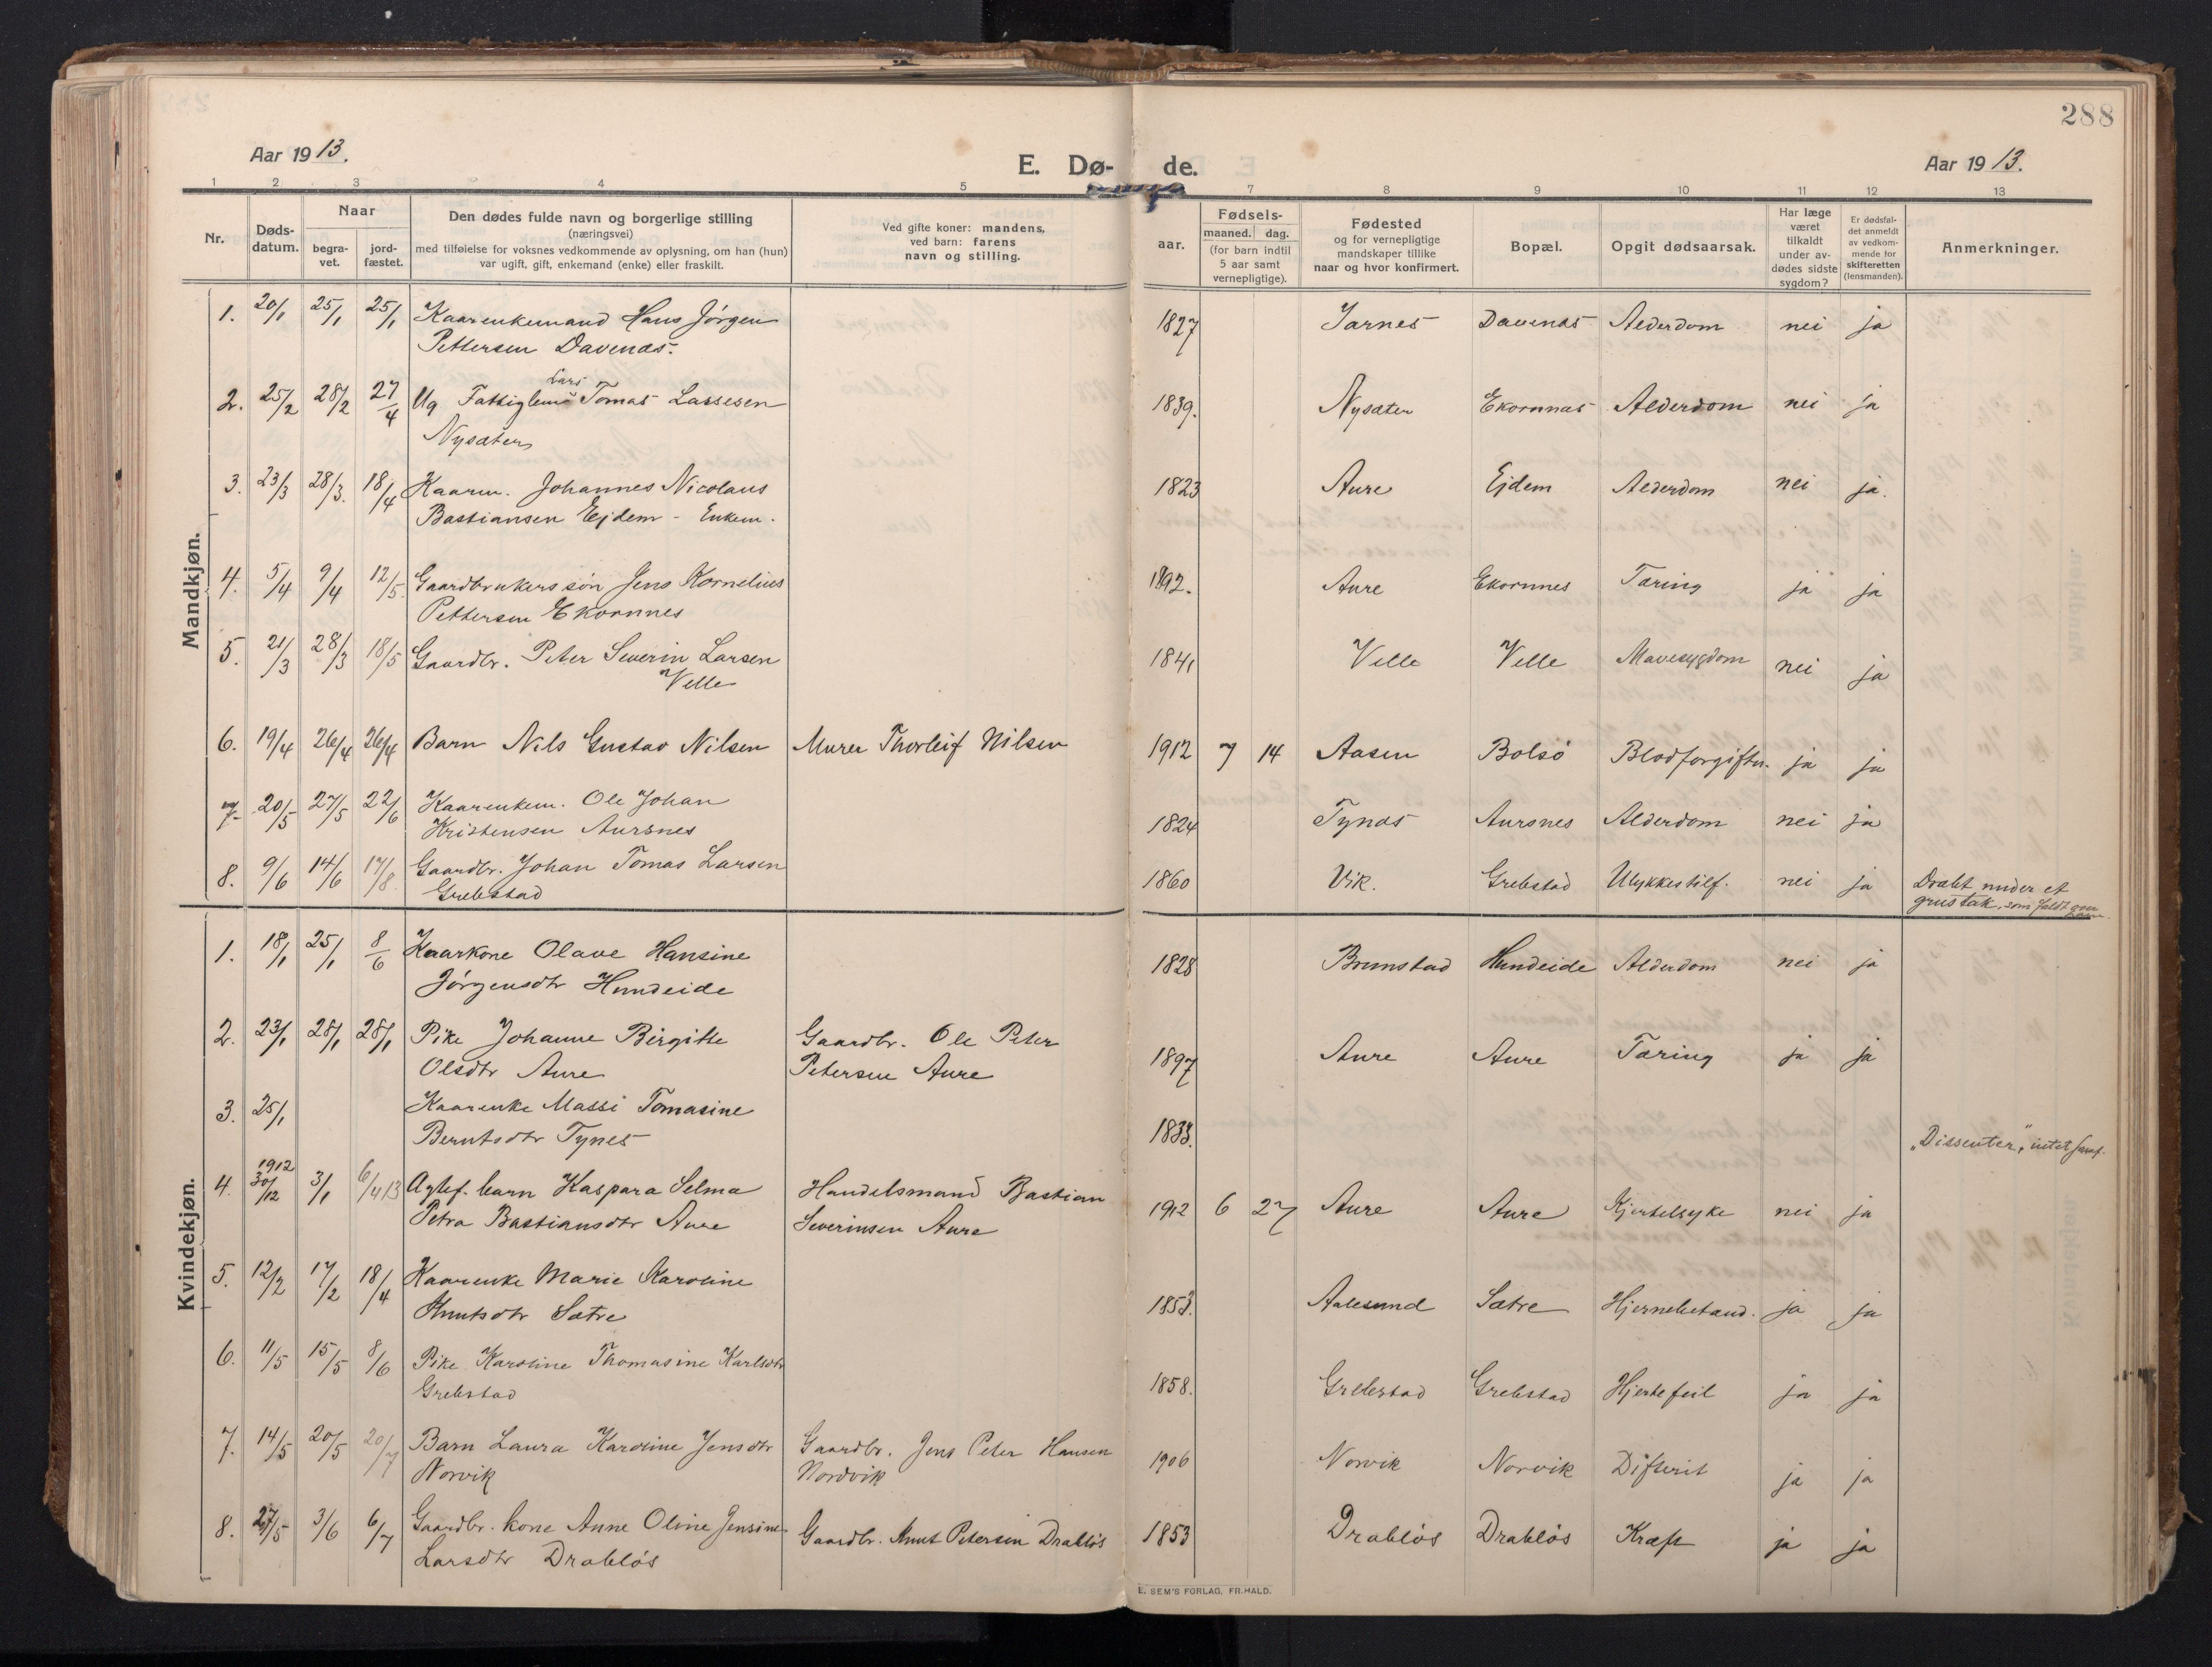 288
Aar 1913.
E. Dø- de.
Aar 1913.
1 2 3 4 5 7 8 9 10 11 12 13
Nr.
Døds-
datum.
Naar
begra-
vet.
jord-
fæstet.
Den dødes fulde navn og borgerlige stilling
(næringsvei)
med tilføielse for voksnes vedkommende av oplysning, om han (hun)
var ugift, gift, enkemand (enke) eller fraskilt.
Ved gifte koner: mandens,
ved barn: farens
navn og stilling.
aar.
Fødsels-
maaned. dag.
(for barn indtil
5 aar samt
vernepligtige).
Fødested
og for vernepligtige
mandskaper tillike
naar og hvor konfirmert.
Bopæl.
Opgit dødsaarsak.
Har læge
været
tilkaldt
under av-
dødes sidste
sygdom?
Er dødsfal-
det anmeldt
av vedkom-
mende for
skifteretten
(lensmanden).
Anmerkninger.
Mandkjøn.
1. 20/1 25/1 25/1 Kaarenkemand Hans Jørgen 1827 Jarnes Davenæs Alderdom nei ja
Pettersen Davenæs.
Lars
2. 25/2 28/2 27/4 Ug Fattiglem Tomas Lassesen 1839. Nysæter Ekornnæs Alderdom nei ja
Nysæter
3. 23/3 28/3. 18/4 Kaarm. Johannes Nicolaus 1823 Aure Ejdem Alderdom nei ja.
Bastiansen Ejdem - Enkem.
4. 5/4 9/4 12/5. Gaardbrukers søn Jens Kornelius 1892. Aure Ekornnes Tæring ja ja
Pettersen Ekornnes
5. 21/3 28/3 18/5 Gaardbr. Peter Severin Larsen 1841 Velle Velle Mavesygdom nei ja
Velle
6. 19/4 26/4 26/4 Barn Nils Gustav Nilsen Murer Thorleif Nilsen 1912 7 14 Aasen Bolsö Blodforgiftn. ja ja
7. 20/5 27/5 22/6 Kaarenkem. Ole Johan 1824 Tynæs Aursnes Alderdom nei ja
Kristensen Aursnes
8. 9/6 14/6 17/8. Gaardbr. Johan Tomas Larsen 1860 Vik. Grebstad Ulykkestilf. nei ja Dræbt under et
Grebstad grustak, som faldt over ham.
Kvindekjøn.
1. 18/1 25/1 8/6 Kaarkone Olave Hansine 1828 Brunstad Hundeide Alderdom nei ja
Jørgensdtr Hundeide
2. 23/1 28/1 28/1 Pike Johanne Birgitte Gaardbr. Ole Peter 1897 Aure Aure Tæring ja ja
Olsdtr Aure Petersen Aure
3. 25/1 Kaarenke Massi Tomasine 1833. "Dissenter", intet
Berntsdtr Tynes
1912
4. 30/12 3/1 6/4 13 Agtef. barn Kaspara Selma Handelsmand Bastian 1912 6 27 Aure Aure Kjertelsyke nei ja
Petra Bastiansdtr Aure Severinsen Aure
5. 12/2 17/2 18/4 Kaarenke Marie Karoline 1853. Aalesund Sætre Hjernebetænd. ja ja
Knutsdtr Sætre
6. 11/5 15/5 8/6 Pike Karoline Thomasine Karlsdtr 1858. Grebstad Grebstad Hjertefeil ja ja
Grebstad
7. 14/5 20/5 20/7 Barn Laura Karoline Jensdtr Gaardbr. Jens Peter Hansen 1906 Norvik Norvik Difterit ja ja
Norvik Nordvik
8. 27/5 3/6 6/7 Gaardbr. kone Anne Oline Jensine Gaardbr. Knut Petersen Drabløs 1853 Drabløs Drabløs Kræft ja ja
Larsdtr Drabløs
E. SEM'S FORLAG, FR.HALD.